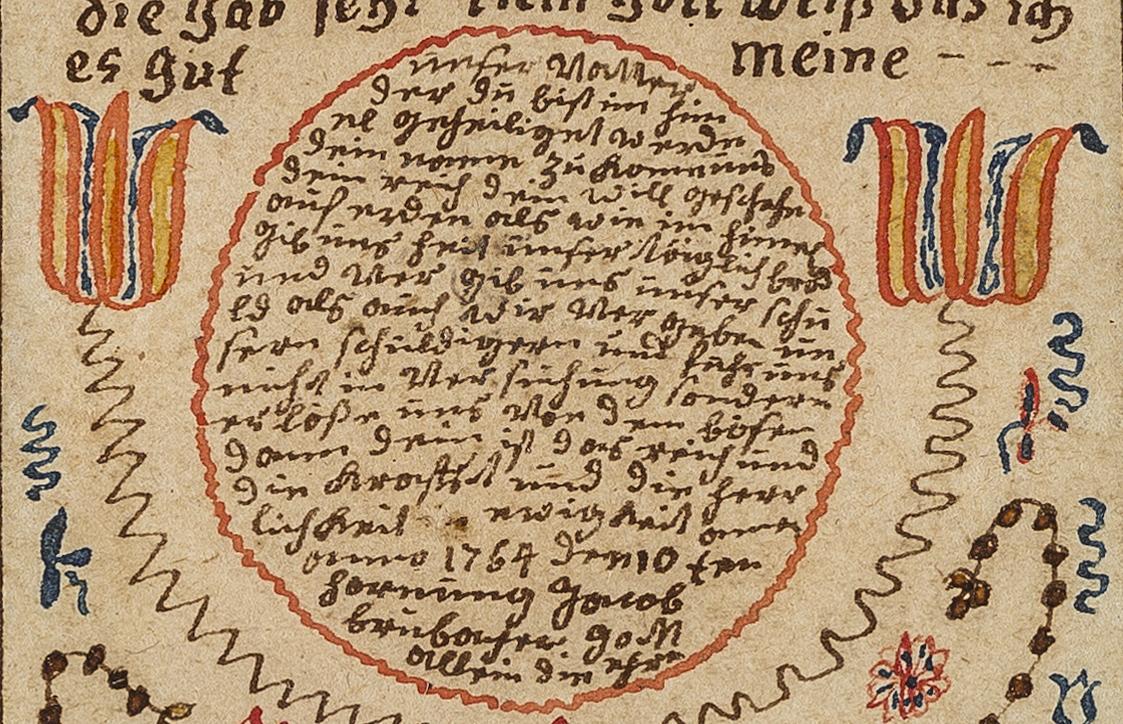 die gab sehr nein Gott weiß das ich
es gut meine - - -
unser Vatter
der du bist im him
el geheiliget werde
dein name zu komm uns
dein reich dein will geschehe
auf erden als wie im himel
gib uns heit unser täiglich brod
und Ver gib uns unser schu
ld als auch wir Ver geben un
sern schuldigern und fuhr uns
nicht in Ver suchung sondern
er lose uns Von dem bösen
dann dein ist das reich und
die Krafft und die herr
lichkeit ewigkeit amen
anno 1764 den 10 ten
hornung Jacob
brubacher Gott
allein die ehre